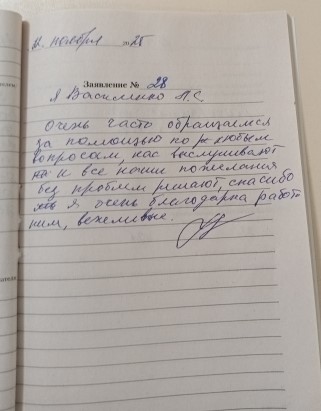 12. ноября 25
Заявление № 28
Я Василенко Л.С
Очень часто обращаемся
за помощью по любым
вопросам, нас выслушивают
и все наши пожелания
без проблем решают, спасибо
я очень благодарна работ
ним, вежливые.